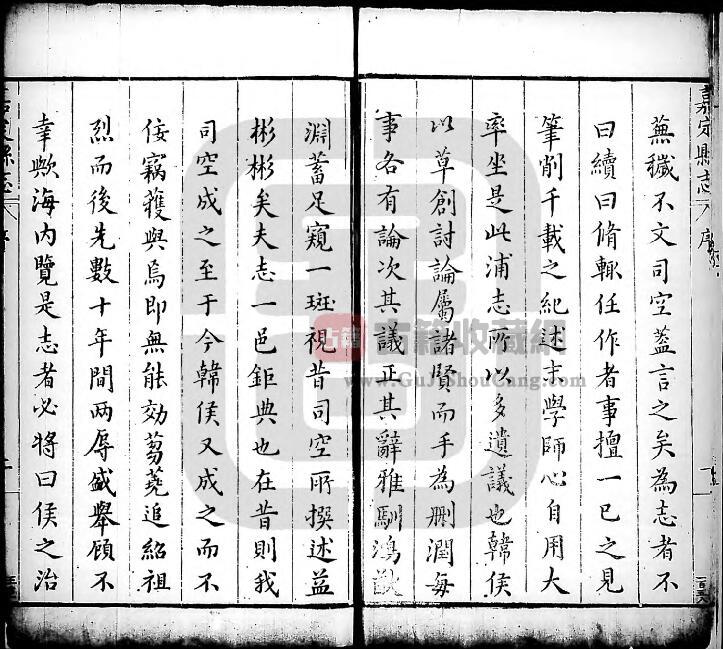 嘉定縣志 序
蕪穢不文司空蓋言之矣為志者不
曰續曰脩輒任作者事擅一已之見
筆削千載之紀述末學師心自用大
率坐是此浦志所以多遺議也韓侯
以草創討論屬諸賢而手為刪潤每
事各有論次其議正其辭雅馴鴻猷
淵蓄足窺一斑視昔司空所撰述益
彬彬矣夫志一邑鉅典也在昔則我
司空成之至于今韓侯又成之而不
佞竊獲與焉即無能効蒭蕘追紹祖
烈而後先數十年間兩辱盛舉顧不
幸歟海內覽是志者必將曰侯之治
古籍 書籍收藏網
www.GuJiShouCang.com